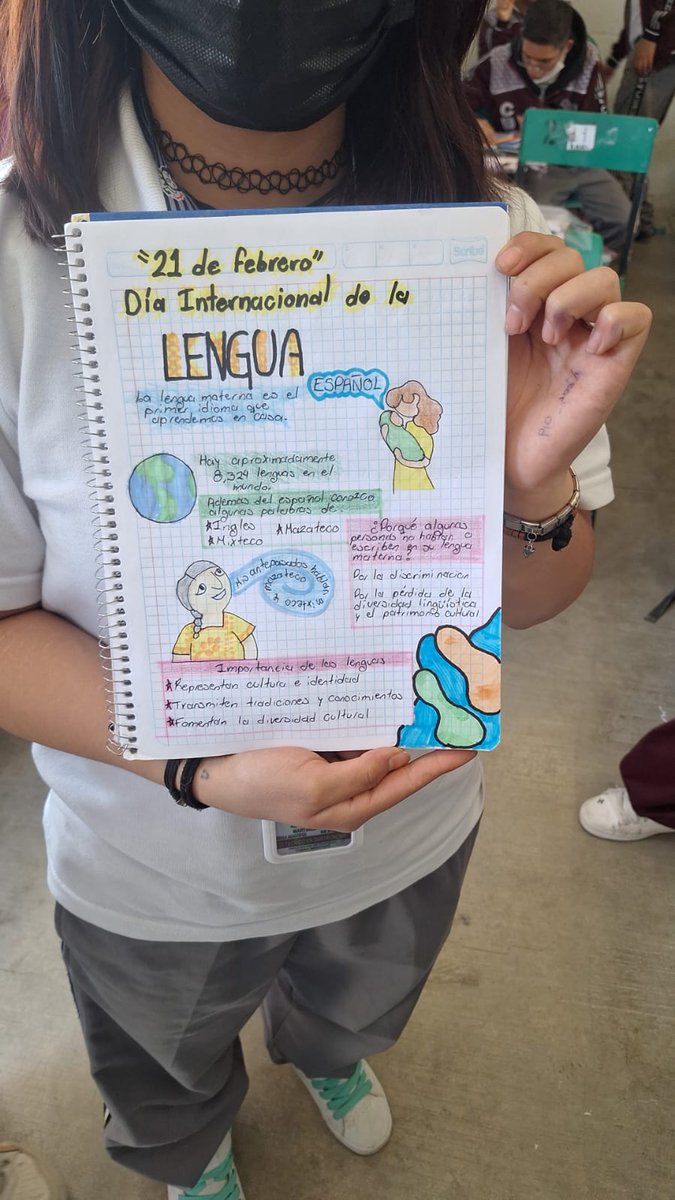 Scribe
"21 de febrero"
Día Internacional de la
LENGUA
La lengua materna es el
primer idioma que
aprendemos en casa.
ESPAÑOL
Hay aproximadamente
8,324 lenguas en el
mundo.
Además del español conozco
algunas palabras de:
Ingles
Mazateco
Mixteco
¿Porqué algunas
personas no hablan o
escriben en su lengua
materna?
Por la discriminacion
Por la pérdida de la
diversidad lingüística
y el patrimonio cultural
Mis antepasados hablan
mazateco y
mixteco
Importancia de las lenguas
Representan cultura e identidad
Transmiten tradiciones y conocimientos
Fomentan la diversidad cultural